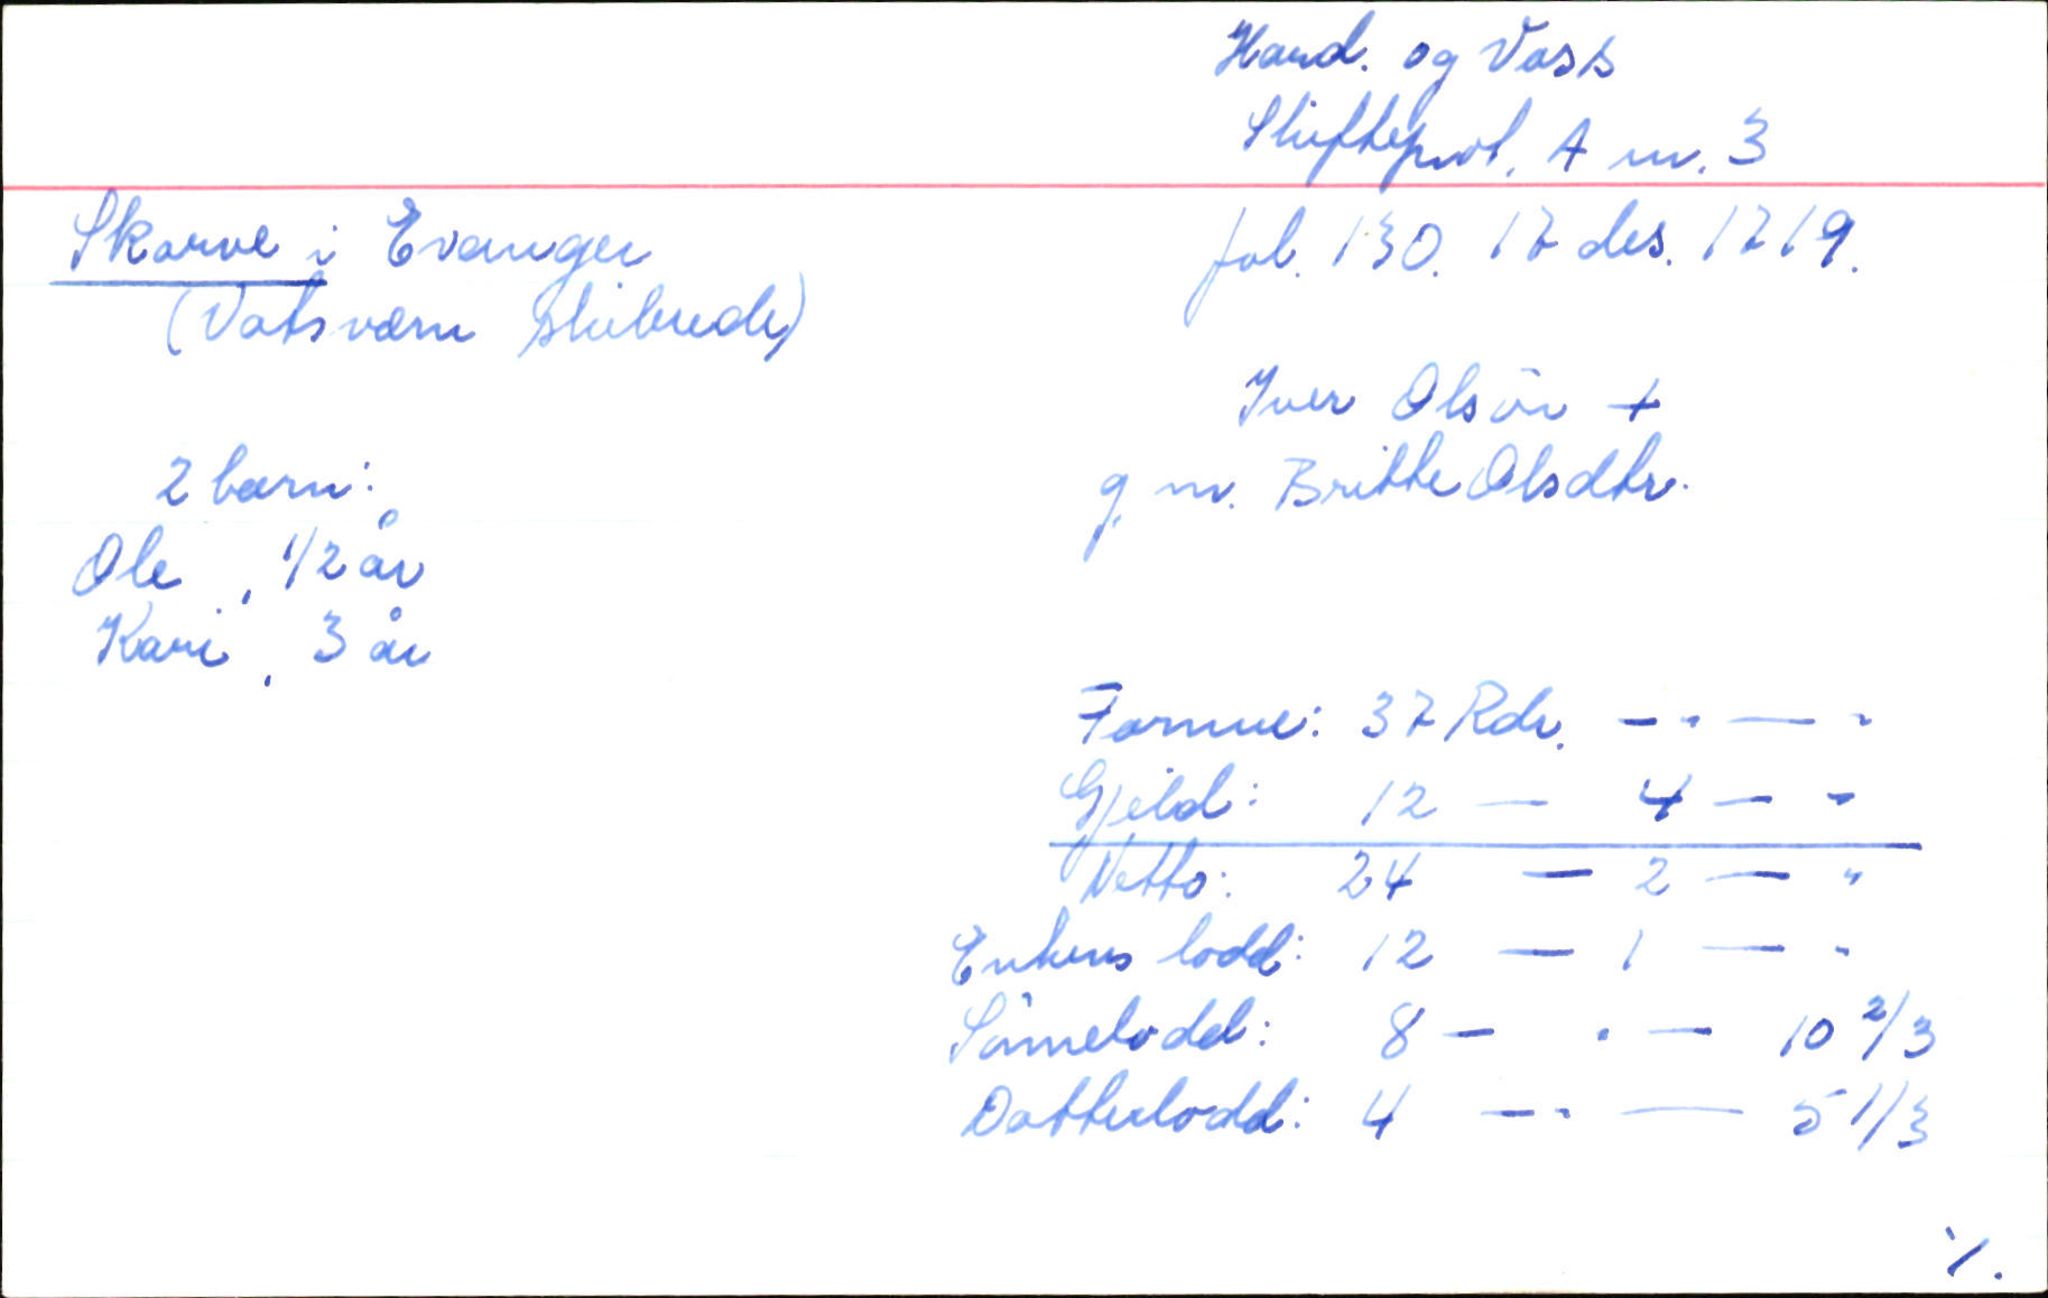 Hard. og Voss
Skifteprot. A nr. 3
Skorve i Evanger
fol. 130. 17 des. 1719.
(Vatsværn skibrede)
Iver Olsön +
g. m. Britte Olsdtr.
2 barn:
Ole , 1/2 år
Kari , 3 år
Formue: 37 Rdr. - " - "
Gjeld: 12 - 4 - "
Netto: 24 - 2 - "
Enkens lodd: 12 - 1 - "
Sönnelodd: 8 - " - 10 2/3
Datterlodd: 4 - " - 5 1/3
·/.